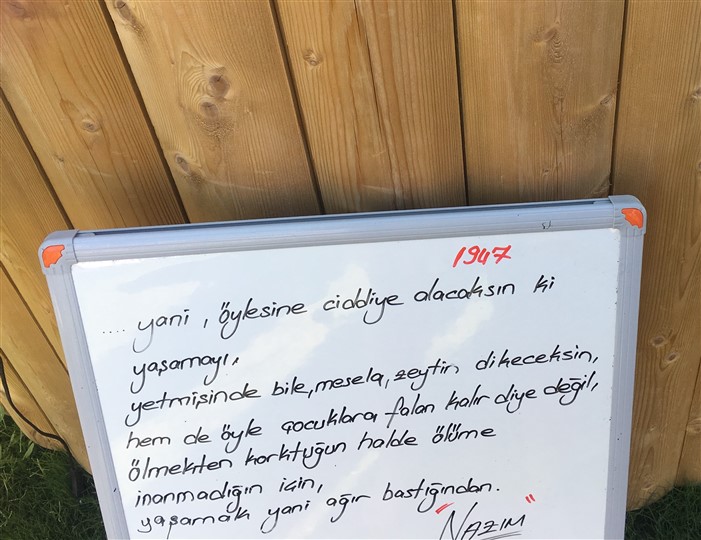 1947
.... yani, öylesine ciddiye alacaksın ki
yaşamayı,
yetmişinde bile, mesela, zeytin dikeceksin,
hem de öyle çocuklara falan kalır diye değil,
ölmekten korktuğun halde ölüme
inanmadığın için,
yaşamak yani ağır bastığından.
"NAZIM"